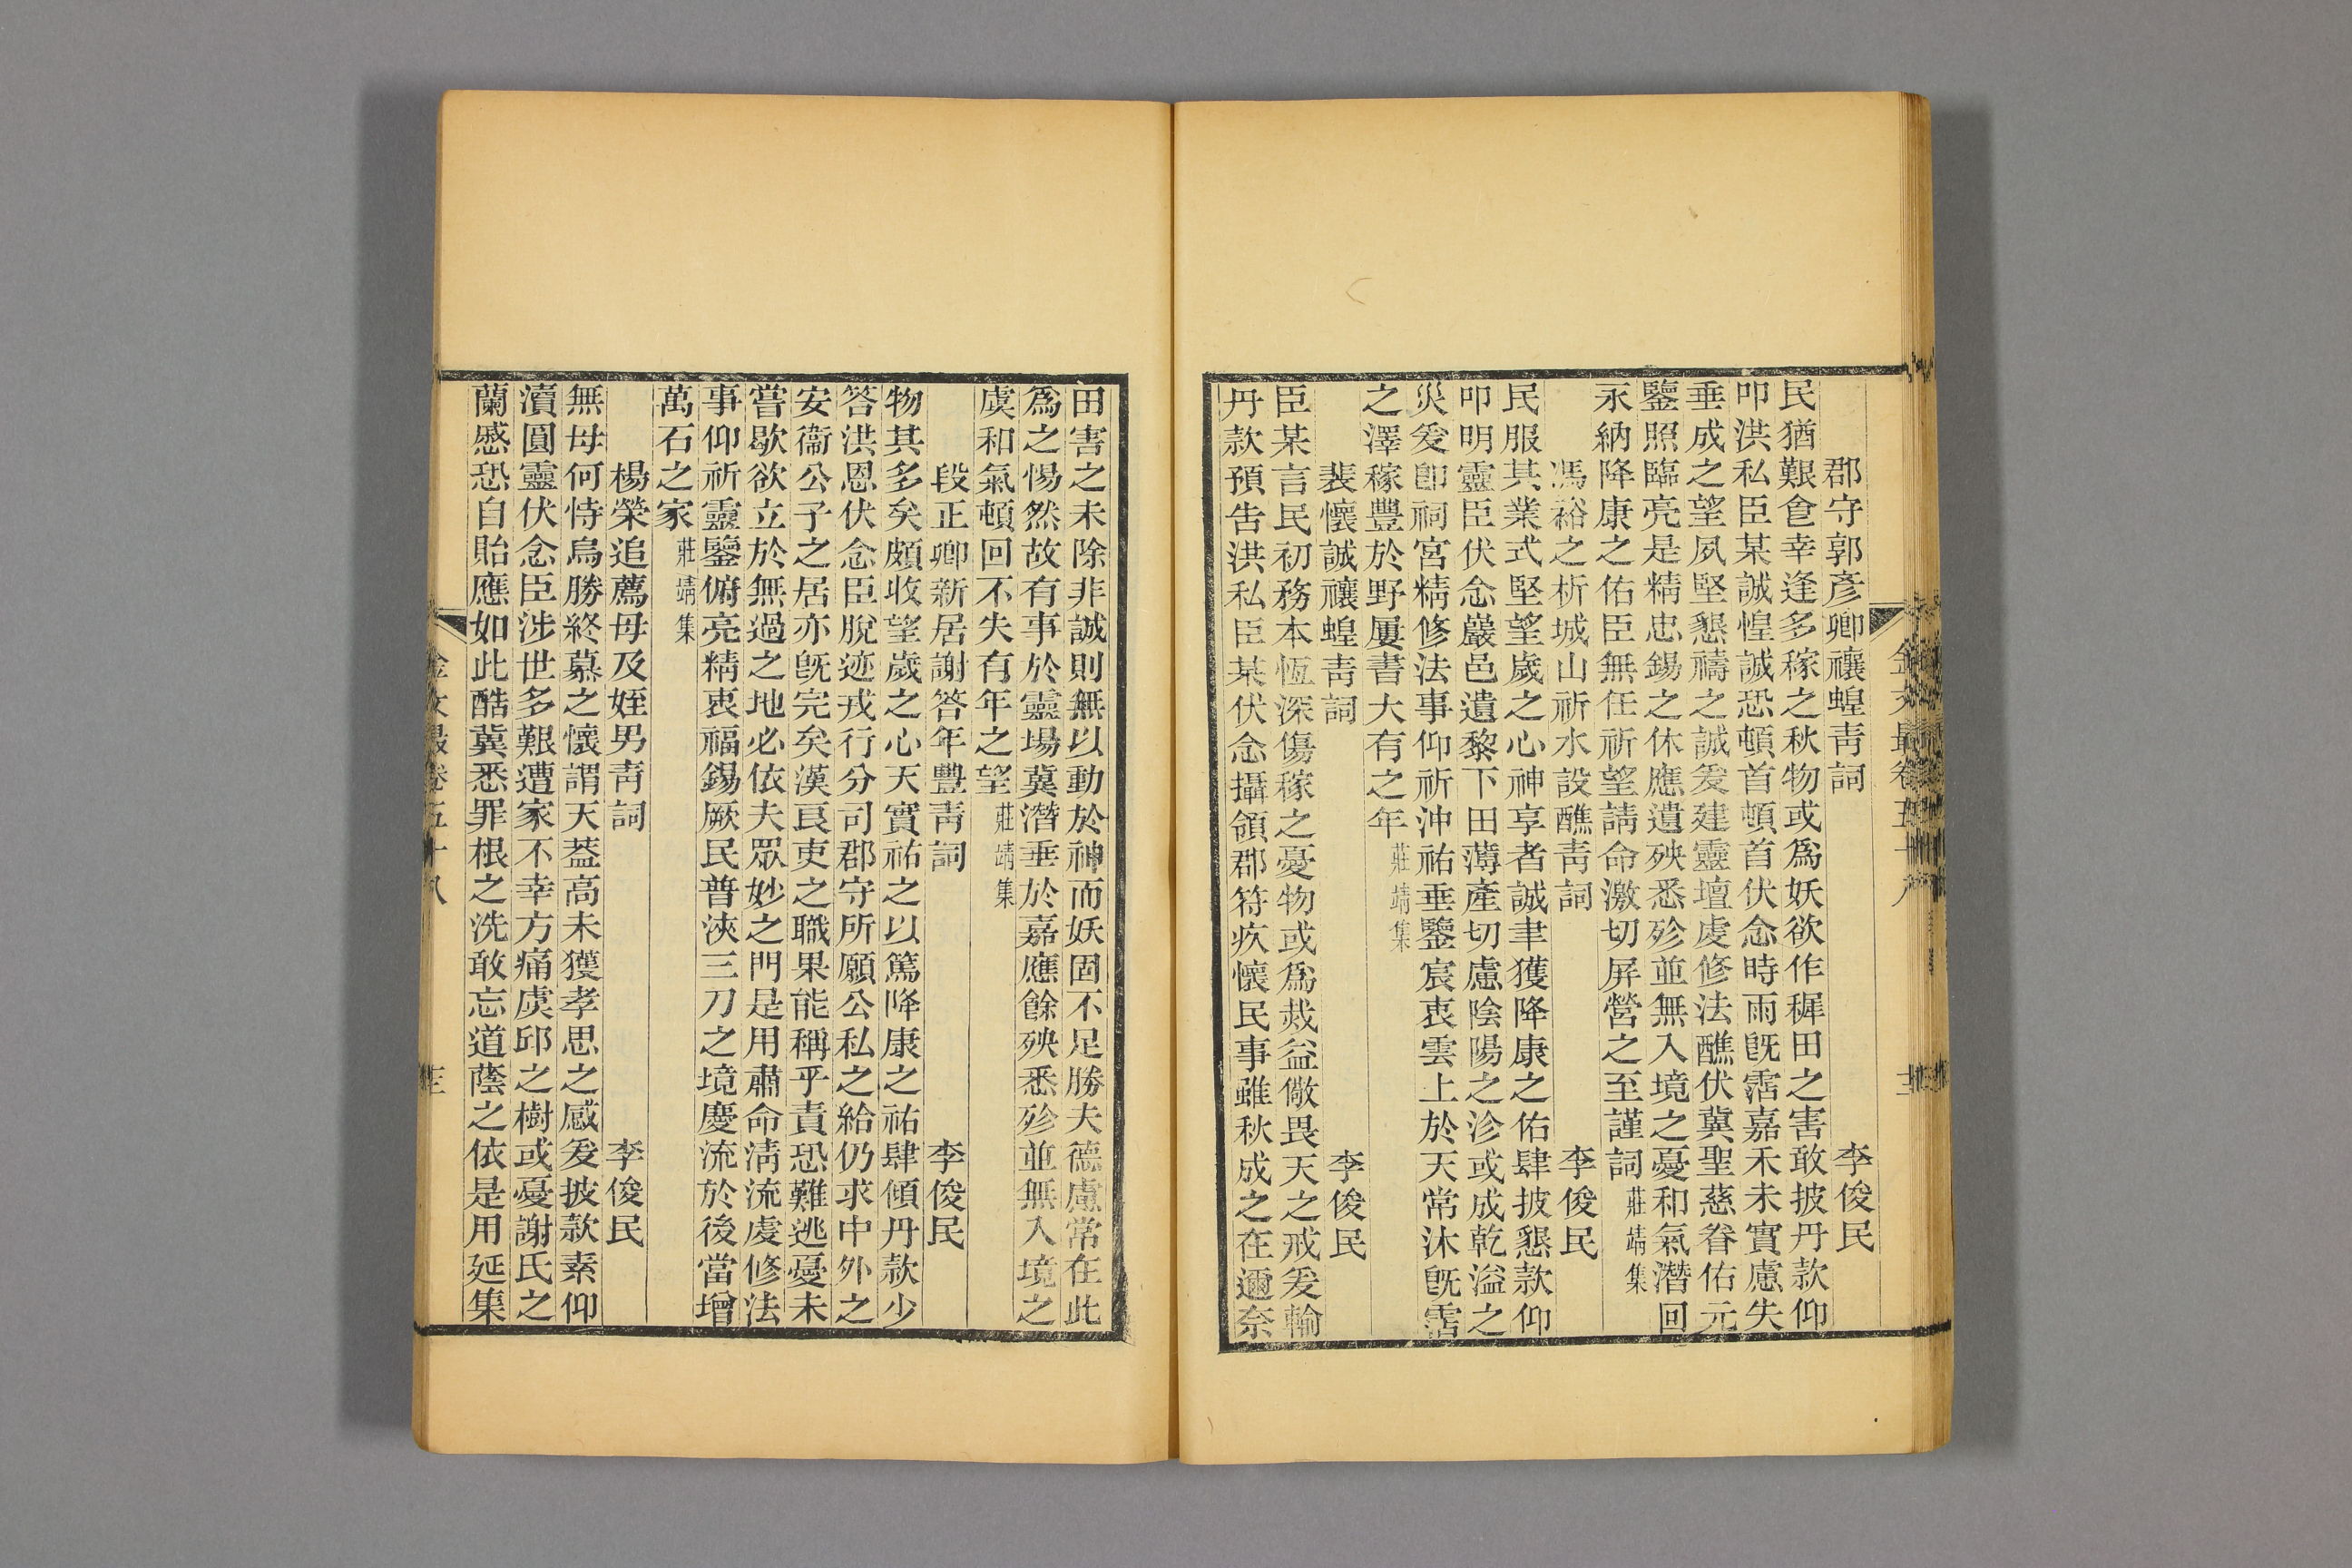 郡守郭彥卿禳蝗靑詞　李俊民
民猶艱食幸逢多稼之秋物或爲妖欲作穉田之害敢披丹款仰
叩洪私臣某誠惶誠恐頓首頓首伏念時雨旣霑嘉禾未實慮失
垂成之望夙堅懇禱之誠爰建靈壇虔修法醮伏冀聖慈眷佑元
鑒照臨亮是精忠錫之休應遺殃悉殄並無入境之憂和氣潛回
永納降康之佑臣無任祈望請命激切屏營之至謹詞莊靖集
馮裕之析城山祈水設醮靑詞　李俊民
民服其業式堅望歲之心神享者誠聿獲降康之佑肆披懇款仰
叩明靈臣伏念巖邑遺黎下田薄產切慮陰陽之沴或成乾溢之
災爰卽祠宮精修法事仰祈沖祐垂鑒宸衷雲上於天常沐旣霑
之澤稼豐於野屢書大有之年莊靖集
裴懷誠禳蝗靑詞　李俊民
臣某言民初務本恆深傷稼之憂物或爲烖益儆畏天之戒爰輸
丹款預告洪私臣某伏念攝領郡符疚懷民事雖秋成之在邇奈
金文最卷五十八
田害之未除非誠則無以動於神而妖固不足勝夫德慮常在此
爲之惕然故有事於靈場冀潛垂於嘉應餘殃悉殄並無入境之
虞和氣頓回不失有年之望莊靖集
段正卿新居謝答年豐靑詞　李俊民
物其多矣頗收望歲之心天實祐之以篤降康之祜肆傾丹款少
答洪恩伏念臣脫迹戎行分司郡守所願公私之給仍求中外之
安衞公子之居亦旣完矣漢良吏之職果能稱乎責恐難逃憂未
嘗歇欲立於無過之地必依夫眾妙之門是用肅命淸流虔修法
事仰祈靈鑒俯亮精衷福錫厥民普浹三刀之境慶流於後當增
萬石之家莊靖集
楊榮追薦母及姪男靑詞　李俊民
無母何恃烏勝終慕之懷謂天葢高未獲孝思之感爰披款素仰
瀆圓靈伏念臣涉世多艱遭家不幸方痛虞邱之樹或憂謝氏之
蘭慼恐自貽應如此酷冀悉罪根之洗敢忘道蔭之依是用延集
金文最卷五十八